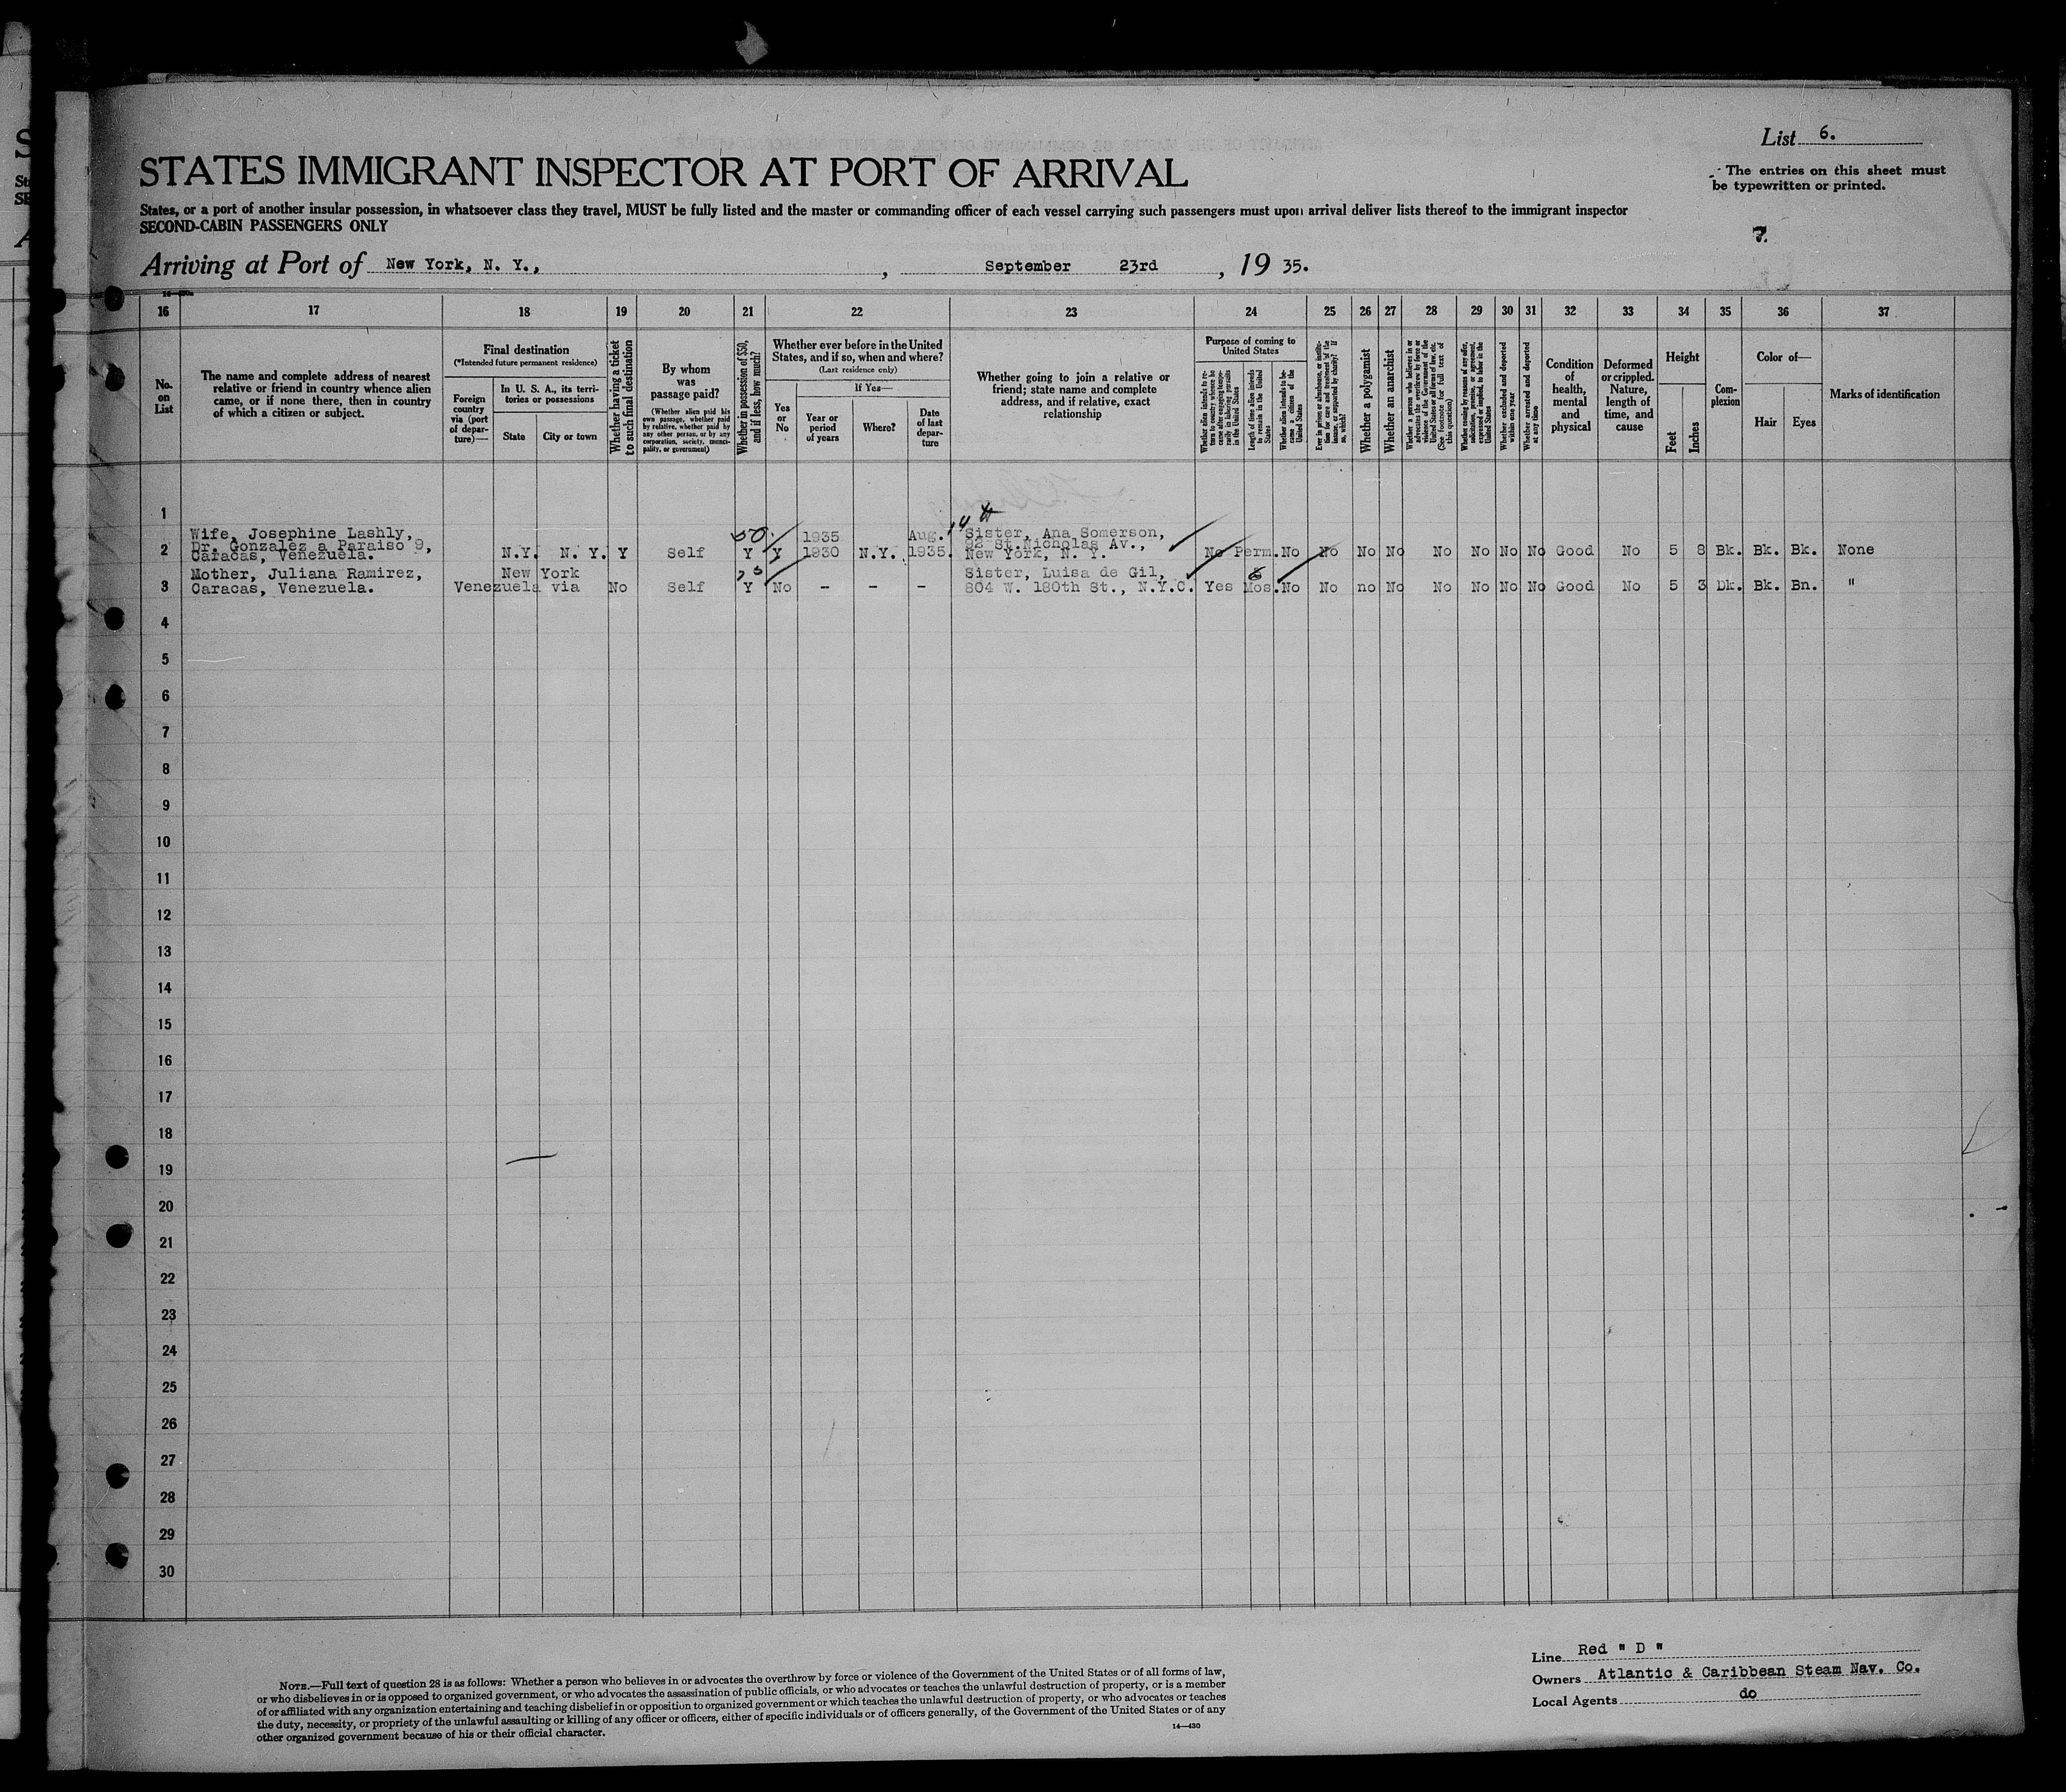 List 6.
STATES IMMIGRANT INSPECTOR AT PORT OF ARRIVAL
The entries on this sheet must
be typewritten or printed.
States, or a port of another insular possession, in whatsoever class they travel, MUST be fully listed and the master or commanding officer of each vessel carrying such passengers must upon arrival deliver lists thereof to the immigrant inspector
SECOND-CABIN PASSENGERS ONLY
7.
Arriving at Port of New York, N. Y., , September 23rd , 19 35.
16 17 18 19 20 21 22 23 24 25 26 27 28 29 30 31 32 33 34 35 36 37
No. on List
The name and complete address of nearest
relative or friend in country whence alien
came, or if none there, then in country
of which a citizen or subject.
Final destination
(*Intended future permanent residence)
Foreign
country
via (port
of depar-
ture)—
In U. S. A., its terri-
tories or possessions
State
City or town
Whether having a ticket
to such final destination
By whom
was
passage paid?
(Whether alien paid his
own passage, whether paid
by relative, whether paid by
any other person, or by any
corporation, society, munici-
pality, or government)
Whether in possession of $50,
and if less, how much?
Whether ever before in the United
States, and if so, when and where?
(Last residence only)
Yes
or
No
If Yes—
Year or
period
of years
Where?
Date
of last
depar-
ture
Whether going to join a relative or
friend; state name and complete
address, and if relative, exact
relationship
Purpose of coming to
United States
Whether alien intends to re-
turn to country whence he
came after engaging tempo-
rarily in laboring pursuits
in the United States
Length of time alien intends
to remain in the United
States
Whether alien intends to be-
come a citizen of the
United States
Ever in prison or almshouse, or institu-
tion for care and treatment of the
insane, or supported by charity? If
so, which?
Whether a polygamist
Whether an anarchist
Whether a person who believes in or
advocates the overthrow by force or
violence of the Government of the
United States or all forms of law, etc.
(See footnote for full text of
this question)
Whether coming by reasons of any offer,
solicitation, promise, or agreement,
expressed or implied, to labor in the
United States
Whether excluded and deported
within one year
Whether arrested and deported
at any time
Condition
of
health,
mental
and
physical
Deformed
or crippled.
Nature,
length of
time, and
cause
Height
Feet
Inches
Com-
plexion
Color of—
Hair
Eyes
Marks of identification
1
14th
Wife, Josephine Lashly, 50. 1935 Aug. Sister, Ana Somerson,
Dr. Gonzalez a Paraiso 9, 92 St. Nicholas Av.,
2 Caracas, Venezuela. N.Y. N. Y. Y Self Y Y 1930 N.Y. 1935. New York, N. Y. No Perm. No No No No No No No No Good No 5 8 Bk. Bk. Bk. None
Mother, Juliana Ramirez, New York Sister, Luisa de Gil, 6
3 Caracas, Venezuela. Venezuela via No Self Y No - - - 804 W. 180th St., N.Y.C. Yes Mos. No No no No No No No No Good No 5 3 Dk. Bk. Bn. "
4
5
6
7
8
9
10
11
12
13
14
15
16
17
18
19
20
21
22
23
24
25
26
27
28
29
30
Line Red " D "
Owners Atlantic & Caribbean Steam Nav. Co.
Local Agents do
NOTE.—Full text of question 28 is as follows: Whether a person who believes in or advocates the overthrow by force or violence of the Government of the United States or of all forms of law,
or who disbelieves in or is opposed to organized government, or who advocates the assassination of public officials, or who advocates or teaches the unlawful destruction of property, or is a member
of or affiliated with any organization entertaining and teaching disbelief in or opposition to organized government or which teaches the unlawful destruction of property, or who advocates or teaches
the duty, necessity, or propriety of the unlawful assaulting or killing of any officer or officers, either of specific individuals or of officers generally, of the Government of the United States or of any
other organized government because of his or their official character.
14—430